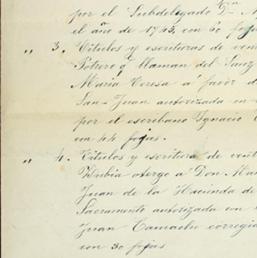 por el Subdelegado Dn.
el año de 1743, con 60 fojas
" 3. Titulos y escrituras de ven
Potrero q llaman del Sauz
Maria Teresa á favor d
San-Juan autorizada en
por el escribano Ignacio
con 44 fojas.
" 4. Titulos y escritura de vent
Rubia otorgo a Don. Man
Juan de la Hacienda de
Sacramento autorizada en
Juan Camacho corregi
con 30 fojas